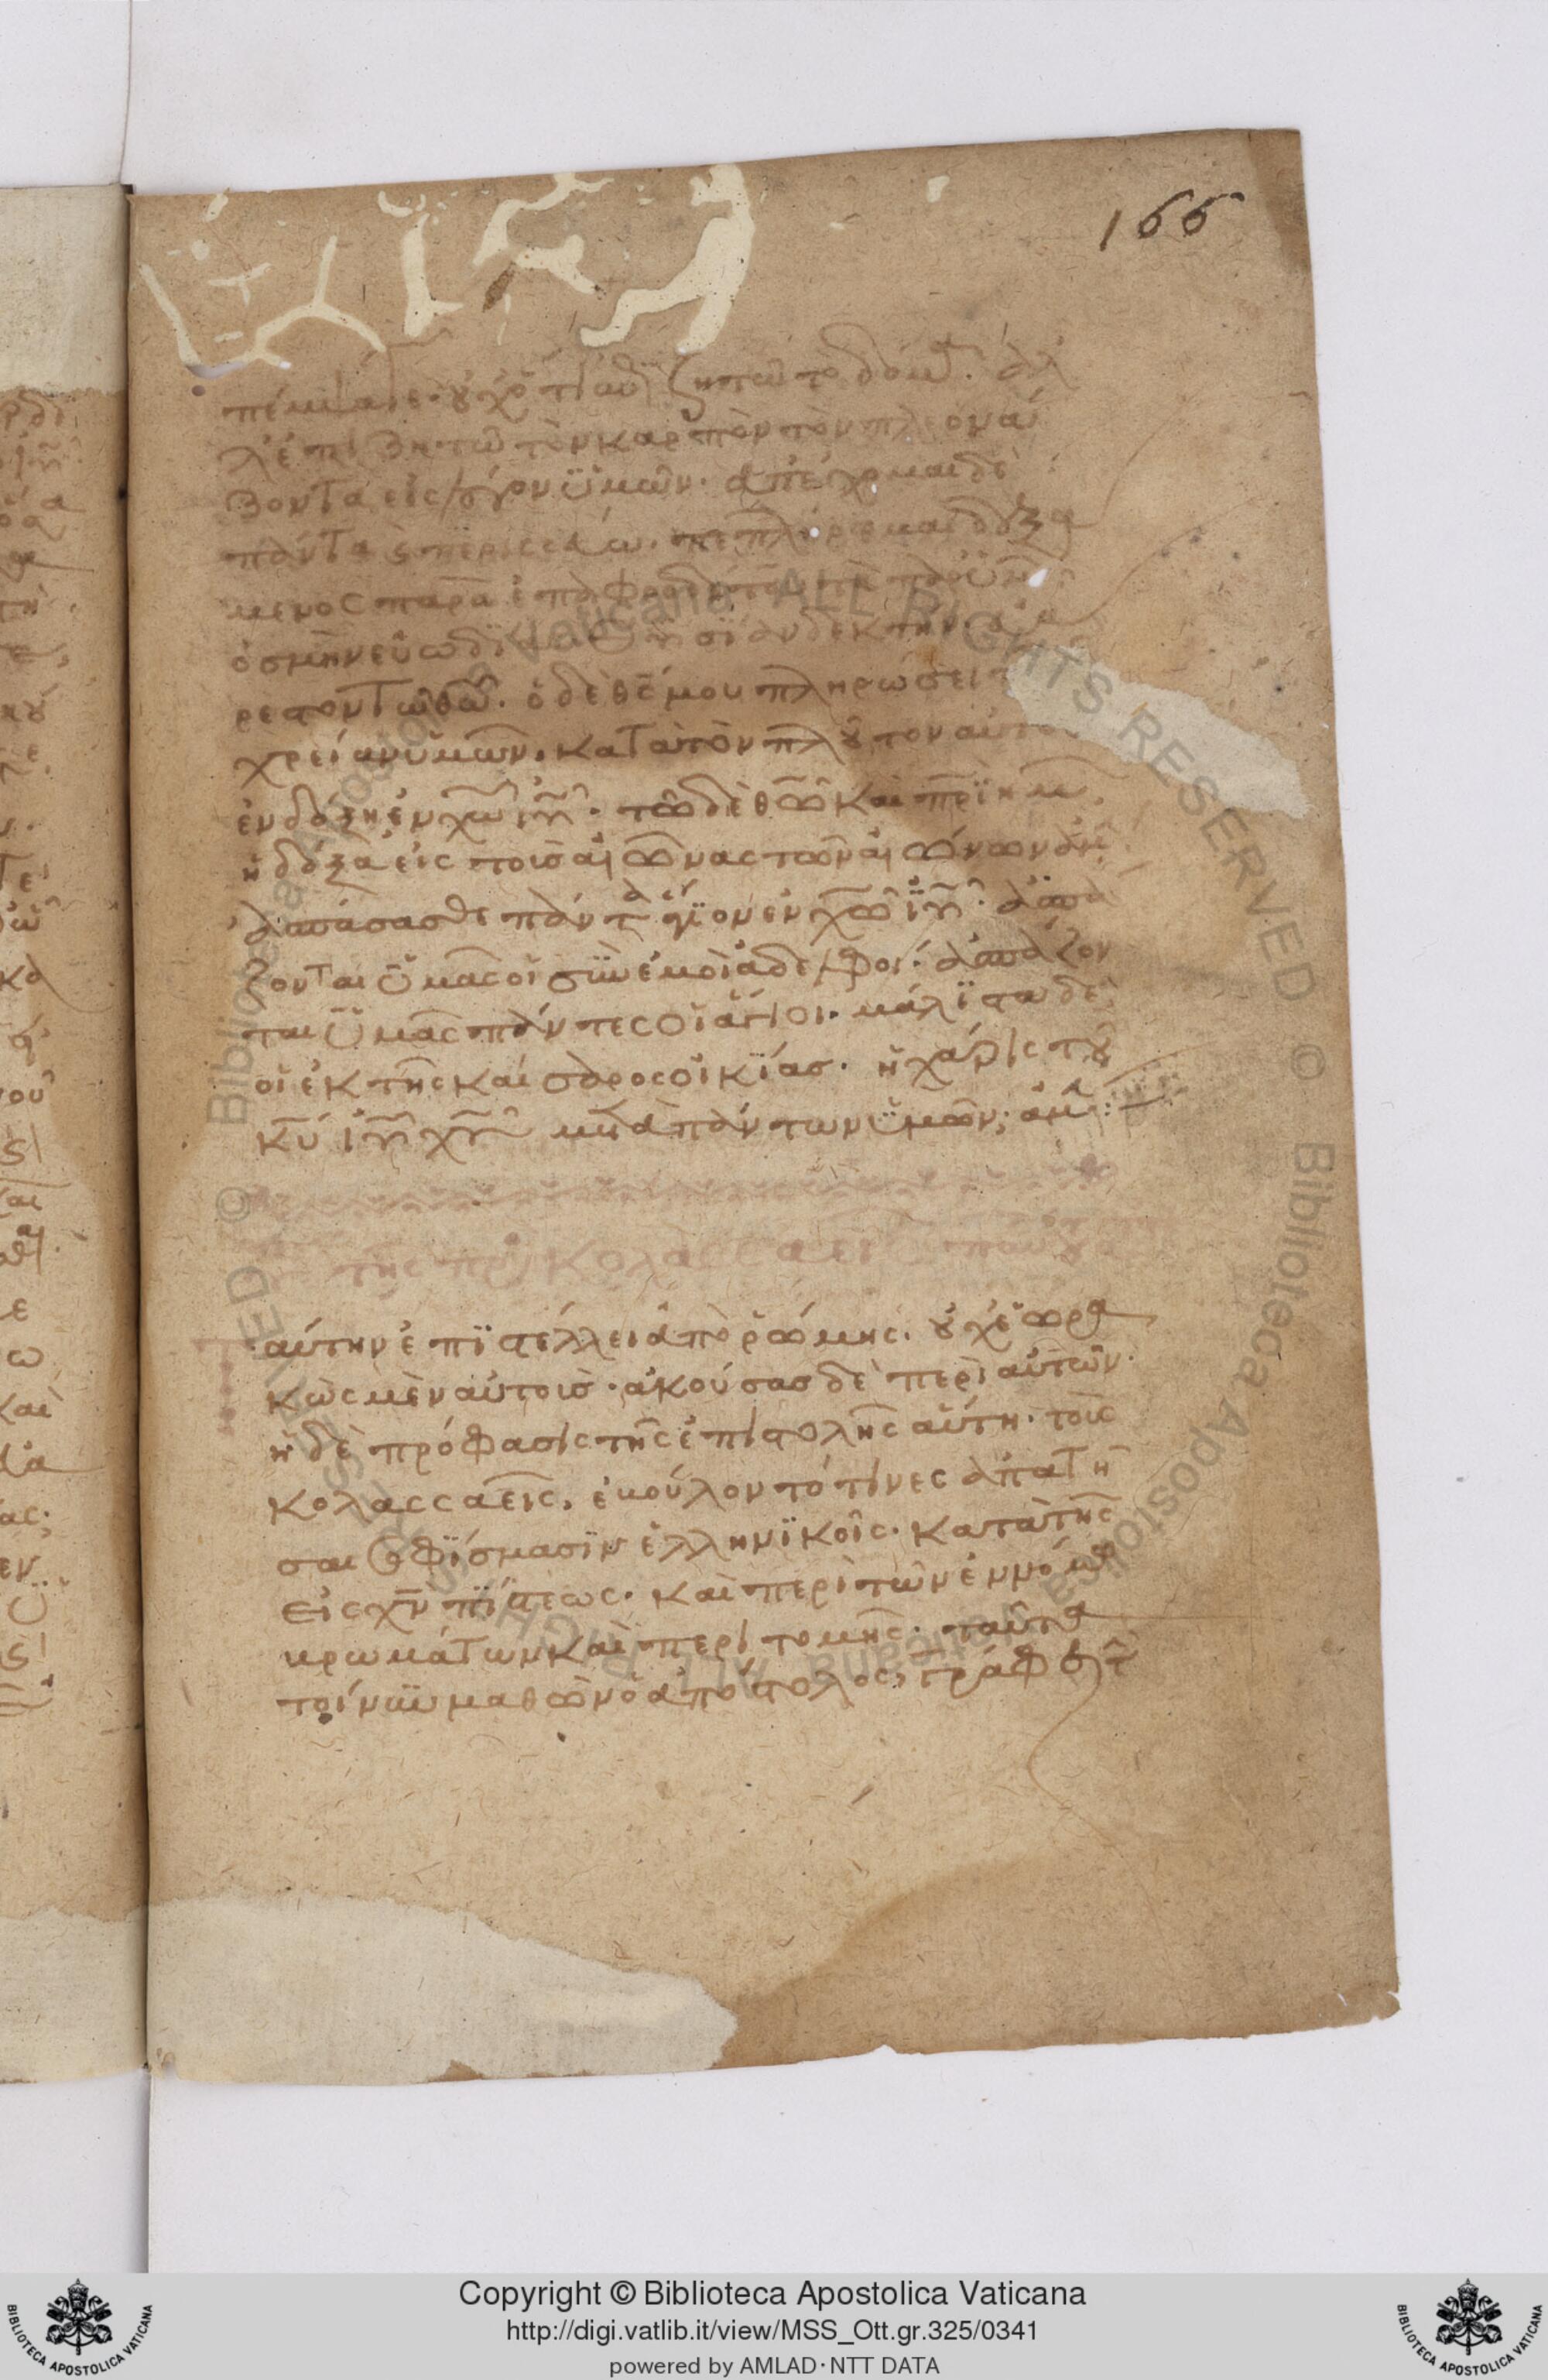 166
πέμψατε· οὐχ ὅτι ἐπιζητῶ τὸ δόμα· ἀλ
λ' ἐπιζητῶ τὸν καρπὸν τὸν πλεονά
ζοντα εἰς λόγον ὑμῶν· ἀπέχω δὲ
πάντα ϗ περισσεύω· πεπλήρωμαι δεξα
μενος παρὰ ἐπαφροδίτου τὰ παρ' ὑμῶν
ὀσμὴν εὐωδΐας θυσΐαν δεκτὴν εὐα
ρεστον τῶ θω· ὁ δὲ θς μου πληρώσει
χρείαν ὑμῶν· κατὰ τὸν πλοῦτον αὐτοῦ
ἐν δόξη ἐν χω ιυ· τῶ δὲ θω καὶ πρι ημων
ἡ δόξα εἰς τοὺς αἰῶνας τῶν αἰώνων ἀμήν·
ἀσπάσασθε πάντα ἅγϊον ἐν χω ιυ· ἀσπά
ζονται ὑμᾶς οἱ σὺν ἐμοὶ ἀδελφοί· ἀσπάζον
ται ὑμᾶς πάντες οἱ ἅγιοι· μάλϊστα δὲ
οἱ ἐκ τῆς καίσαρος οἰκΐας· ἡ χάρις τοῦ
κυ ιυ χυ μετὰ πάντων ὑμῶν· ἀμήν
τῆς πρὸς Κολασσαεῖς
αύτην ἐπϊστέλλει ἀπὸ ῥώμης· οὐχ ἑωρα
κὼς μὲν αὐτοὺς· ἀκούσας δὲ περὶ αὐτῶν·
ἡ δὲ πρόφασις τῆς ἐπιστολῆς αὕτη· τοὺς
κολασσαεῖς, ἐβούλοντό τινες ἀπατῆ
σαι σοφΐσμασϊν ἑλληνϊκοῖς· κατὰ τῆς
εἰς χν πΐστεως· καὶ περὶ τῶν ἐν νόμω
βρωμάτων καὶ περιτομῆς· ταῦτα
τοίνυν μαθὼν ὁ ἀπόστολος, γράφει
Copyright © Biblioteca Apostolica Vaticana
http://digi.vatlib.it/view/MSS_Ott.gr.325/0341
powered by AMLAD·NTT DATA